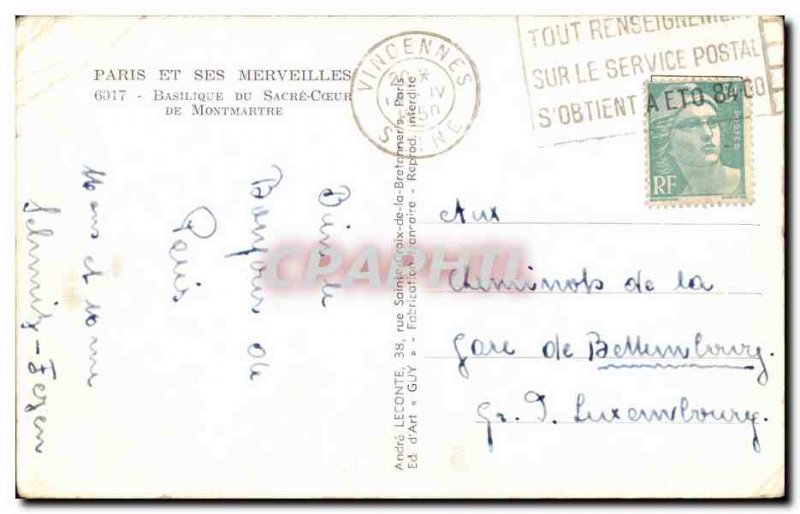 PARIS ET SES MERVEILLES
6017 - BASILIQUE DU SACRÉ-CŒUR
DE MONTMARTRE
VINCENNES
IV
50
SEINE
TOUT RENSEIGNEMENT
SUR LE SERVICE POSTAL
S'OBTIENT A ETO 84-00
POSTES
RF
Aux
cheminots de la
Gare de Bettembourg.
Gr. D. Luxembourg.
Bonjour de
Paris
André LECONTE, 38, rue Sainte-Croix-de-la-Bretonnerie, Paris
Ed. d'Art « GUY » - Fabrication française - Reprod. interdite
CPAPHIL